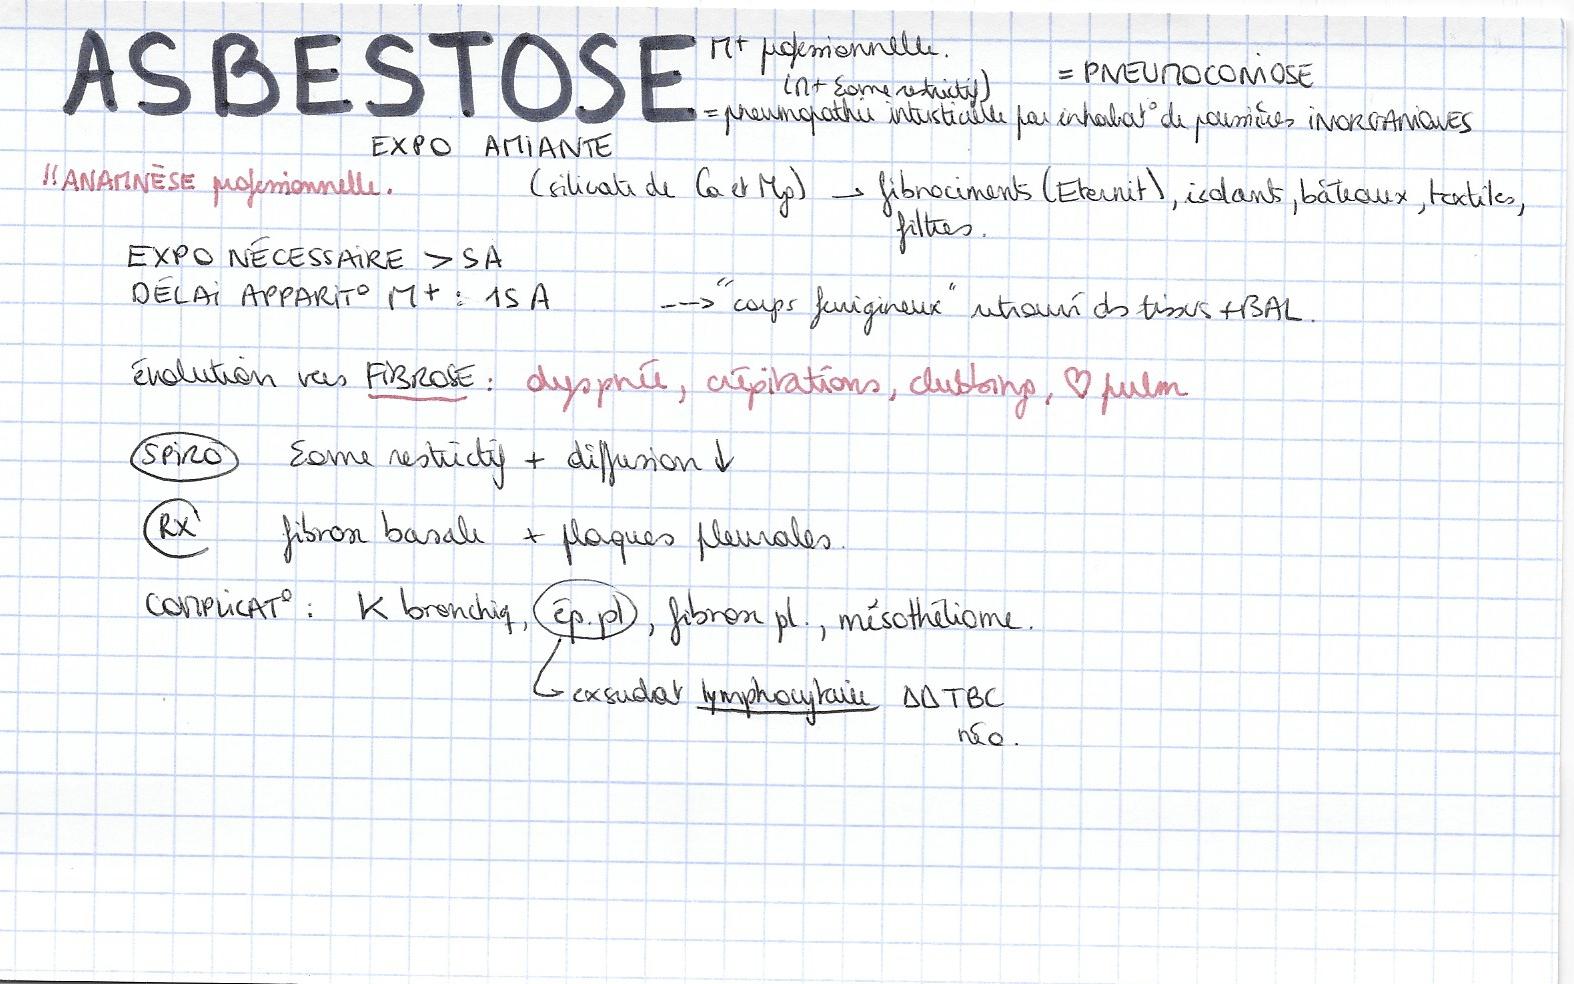 ASBESTOSE M+ professionnelle.
(M+ Σome restrictif)
= PNEUMOCONIOSE
= pneumopathie interstitielle par inhalat° de poussières INORGANIQUES
EXPO AMIANTE
!! ANAMNÈSE professionnelle.
(silicate de Ca et Mg) → fibrociments (Eternit), isolants, bâteaux, textiles,
filtres.
EXPO NÉCESSAIRE > 5A
DÉLAI APPARIT° M+ : 15 A
---> "corps ferrugineux" retrouvé ds tissus + BAL.
Évolution vers FIBROSE : dyspnée, crépitations, clubbing, ♡ pulm
SPIRO Σome restrictif + diffusion ↓
RX fibrose basale + plaques pleurales.
COMPLICAT° : K bronchiq, ép. pl, fibrose pl., mésothéliome.
exsudat lymphocytaire ΔΔ TBC
néo.